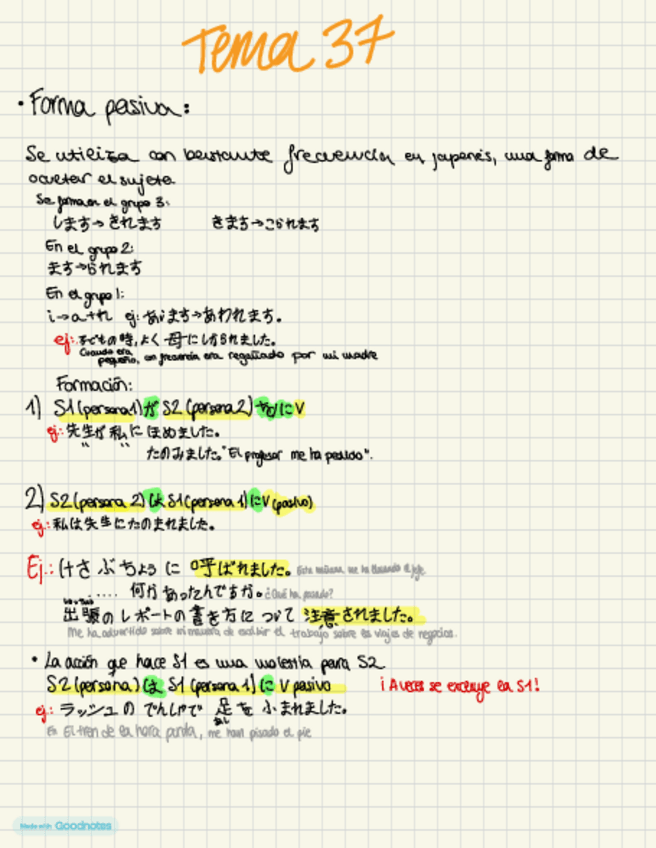 Tema 37
• Forma pasiva:
Se utiliza con bastante frecuencia en japonés, una forma de
ocultar el sujeto
Se forma en el grupo 3:
します→されます きます→こられます
En el grupo 2:
ます→られます
En el grupo 1:
i→a+れ ej: あいます→あわれます。
ej: 子どもの時,よく母にしかられました。
Cuando era
pequeño, con frecuencia era regañado por mi madre
Formación:
1) S1(persona1)が S2 (persona2) を/に V
ej: 先生が私に ほめました。
" "
たのみました."El profesor me ha pedido".
2) S2(persona 2)は S1(persona 1)に V(pasivo)
ej: 私は先生にたのまれました。
Ej.: けさ ぶちょうに 呼ばれました。 Esta mañana, me ha llamado el jefe.
..... 何かあったんですか。¿Qué ha pasado?
出張のレポートの書き方に ついて 注意されました。
Me ha advertido sobre mi manera de escribir el trabajo sobre los viajes de negocios.
• La acción que hace S1 es una molestia para S2
S2(persona)は S1(persona 1)に V pasivo ¡A veces se excluye la S1!
ej: ラッシュの でんしゃで 足を ふまれました。
あし
En El tren de la hora punta, me han pisado el pie
Made with Goodnotes